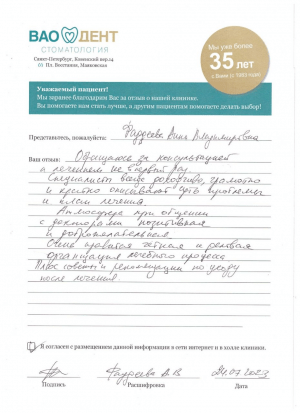 ВАО ДЕНТ
СТОМАТОЛОГИЯ
Санкт-Петербург, Ковенский пер.14
Пл. Восстания, Маяковская
Мы уже более
35 лет
с Вами (с 1983 года)
Уважаемый пациент!
Мы заранее благодарим Вас за отзыв о нашей клинике.
Вы помогаете нам стать лучше, а другим пациентам помогаете делать выбор!
Представьтесь, пожалуйста: Фадеева Анна Владимировна
Ваш отзыв: Обращаюсь за консультацией
и лечением не первый раз.
Специалист всегда доходчиво, грамотно
и кратко описывает суть проблемы
и план лечения.
Атмосфера при общении
с докторами позитивная
и доброжелательная.
Очень нравится четкая и деловая
организация лечебного процесса.
Плюс советы и рекомендации по уходу
после лечения.
Я согласен с размещением данной информации в сети интернет и в холле клиники.
Фадеева А.В 24.07.2023
Подпись Расшифровка Дата